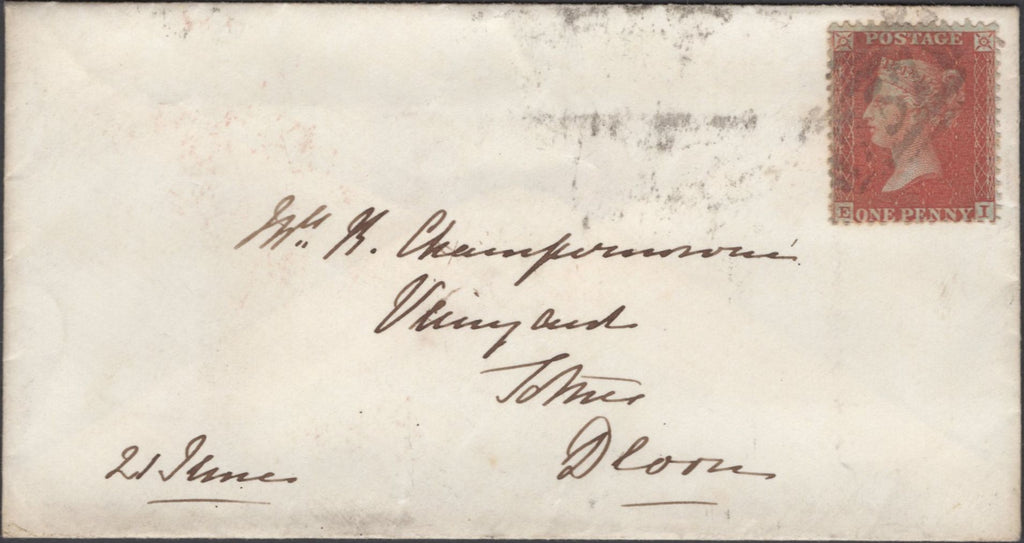 POSTAGE
E ONE PENNY I
R. Champernowne
Vineyard
Totnes
Devon
21 June